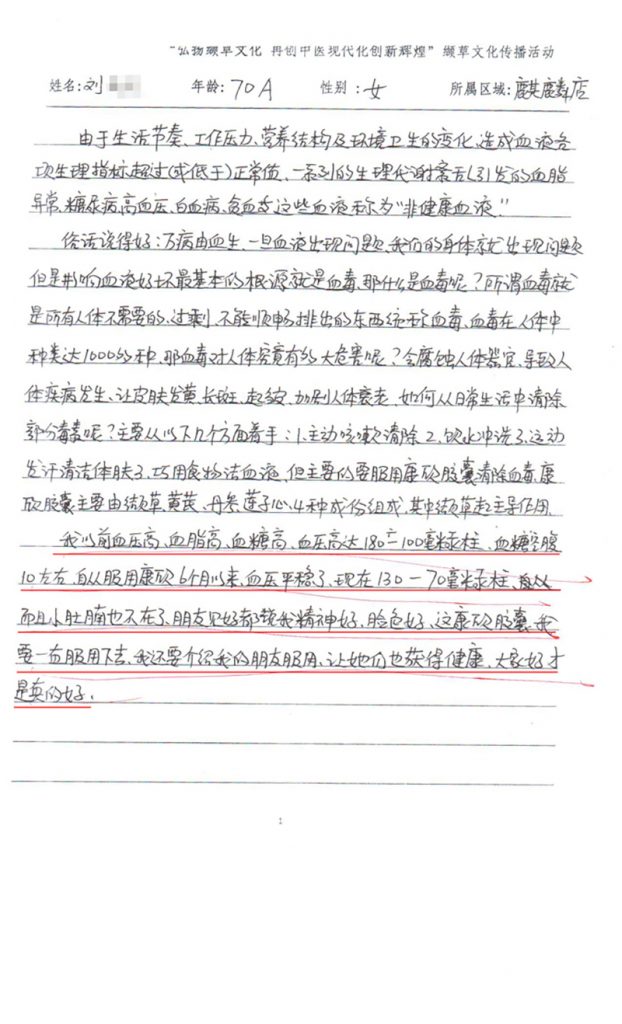 “弘扬缬草文化 再创中医现代化创新辉煌”缬草文化传播活动
姓名:刘 年龄:70A 性别:女 所属区域:麒麟店
由于生活节奏、工作压力、营养结构及环境卫生的变化,造成血液各
项生理指标超过(或低于)正常值、一系列的生理代谢紊乱引发的血脂
异常、糖尿病、高血压、白血病、贫血等这些血液称为“非健康血液”
俗话说得好:万病由血生、一旦血液出现问题、我们的身体就出现问题
但是影响血液好坏最基本的根源就是血毒、那什么是血毒呢?所谓血毒就
是所有人体不需要的、过剩、不能顺畅排出的东西统称血毒、血毒在人体中
种类达1000多种、那血毒对人体究竟有多大危害呢?会腐蚀人体器官、导致人
体疾病发生、让皮肤发黄、长斑、起皱、加剧人体衰老、如何从日常生活中清除
部分毒素呢?主要从以下几个方面着手:1.主动咳嗽清除2、饮水冲洗3、运动
发汗清洁体肤3、巧用食物洁血液、但主要的要服用康欣胶囊清除血毒、康
欣胶囊主要由缬草、黄芪、丹参、莲子心、4种成份组成、其中缬草起主导作用
我以前血压高、血脂高、血糖高、血压高达180—100毫米汞柱、血糖空腹
10左右、自从服用康欣6个月以来、血压平稳了、现在130—70毫米汞柱、
而且小肚腩也不在了、朋友见好都说我精神好、脸色好、这康欣胶囊、我
要一直服用下去、我还要介绍我的朋友服用、让她们也获得健康、大家好才
是真的好。
1